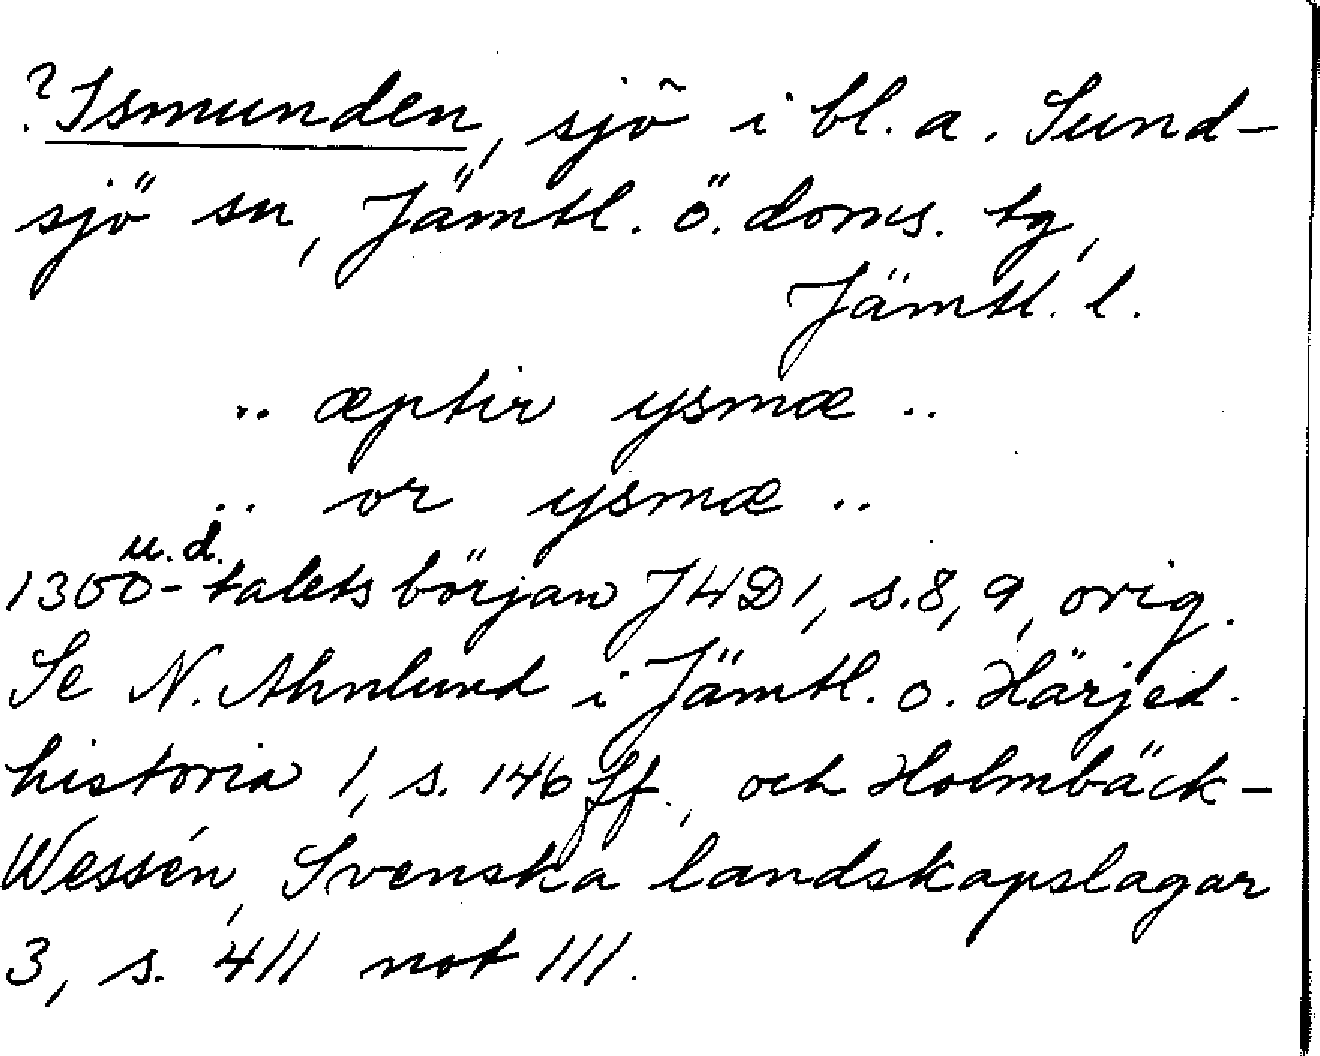 ? Ismunden, sjö i bl. a. Sund-
sjö sn, Jämtl. ö. doms. tg,
Jämtl. l.
.. æptir ysmæ ..
.. or ysmæ ..
u. d.
1300-talets början JHD 1, s. 8, 9, orig.
Se N. Ahnlund i Jämtl. o. Härjed.
historia 1, s. 146 ff., och Holmbäck-
Wessén, Svenska landskapslagar
3, s. 411 not 111.